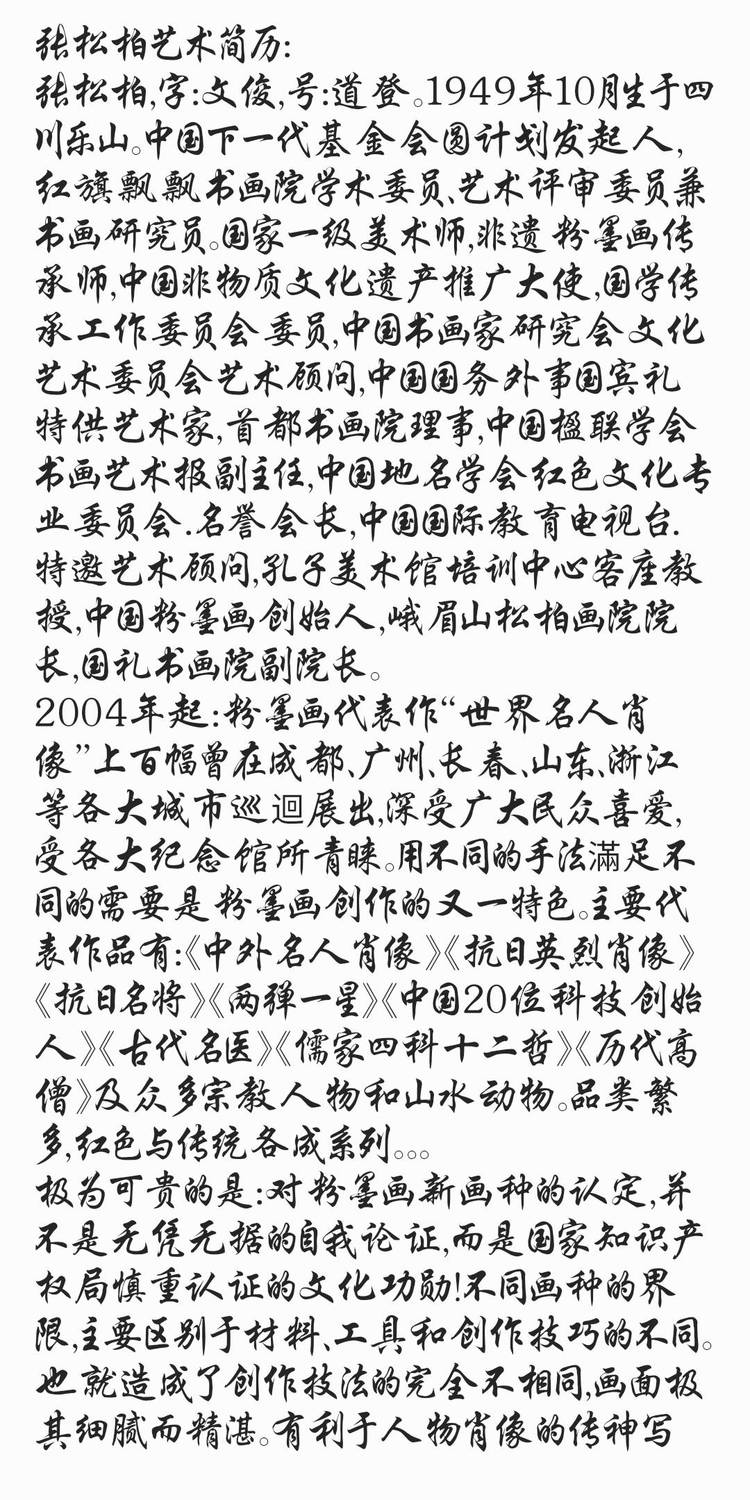 张松柏艺术简历:
张松柏,字:文俊,号:道登。1949年10月生于四
川乐山。中国下一代基金会圆计划发起人,
红旗飘飘书画院学术委员、艺术评审委员兼
书画研究员。国家一级美术师,非遗粉墨画传
承师,中国非物质文化遗产推广大使,国学传
承工作委员会委员,中国书画家研究会文化
艺术委员会艺术顾问,中国国务外事国宾礼
特供艺术家,首都书画院理事,中国楹联学会
书画艺术报副主任,中国地名学会红色文化专
业委员会.名誉会长,中国国际教育电视台.
特邀艺术顾问,孔子美术馆培训中心客座教
授,中国粉墨画创始人,峨眉山松柏画院院
长,国礼书画院副院长。
2004年起:粉墨画代表作“世界名人肖
像”上百幅曾在成都、广州、长春、山东、浙江
等各大城市巡迴展出,深受广大民众喜爱,
受各大纪念馆所青睐。用不同的手法滿足不
同的需要是粉墨画创作的又一特色。主要代
表作品有:《中外名人肖像》《抗日英烈肖像》
《抗日名将》《两弹一星》《中国20位科技创始
人》《古代名医》《儒家四科十二哲》《历代高
僧》及众多宗教人物和山水动物。品类繁
多,红色与传统各成系列。。。
极为可贵的是:对粉墨画新画种的认定,并
不是无凭无据的自我论证,而是国家知识产
权局慎重认证的文化功勋!不同画种的界
限,主要区别于材料、工具和创作技巧的不同。
也就造成了创作技法的完全不相同,画面极
其细腻而精湛。有利于人物肖像的传神写